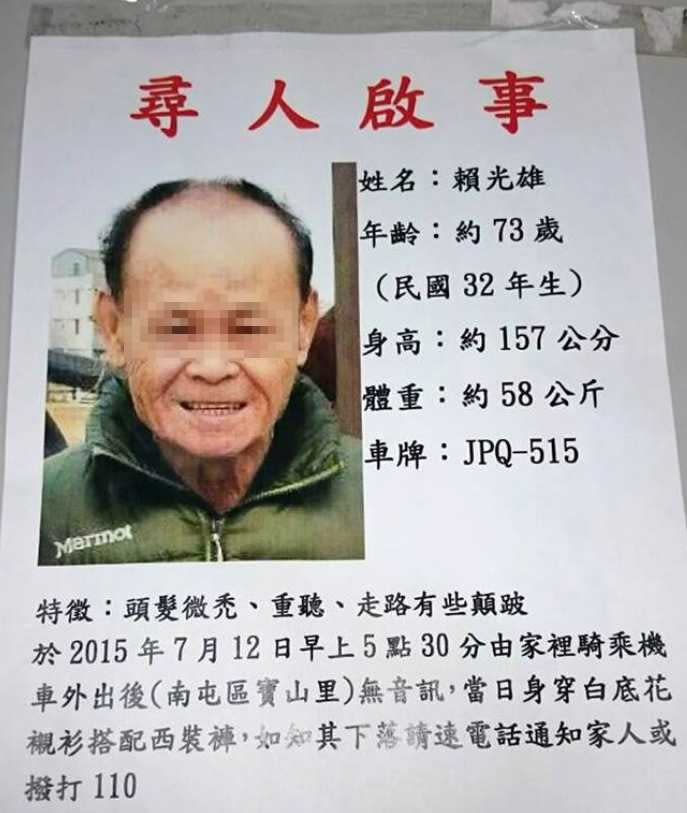 尋人啟事
姓名：賴光雄
年齡：約 73 歲
（民國 32 年生）
身高：約 157 公分
體重：約 58 公斤
車牌：JPQ-515
Marmot
特徵：頭髮微禿、重聽、走路有些顛跛
於 2015 年 7 月 12 日早上 5 點 30 分由家裡騎乘機
車外出後(南屯區寶山里)無音訊，當日身穿白底花
襯衫搭配西裝褲，如知其下落請速電話通知家人或
撥打 110